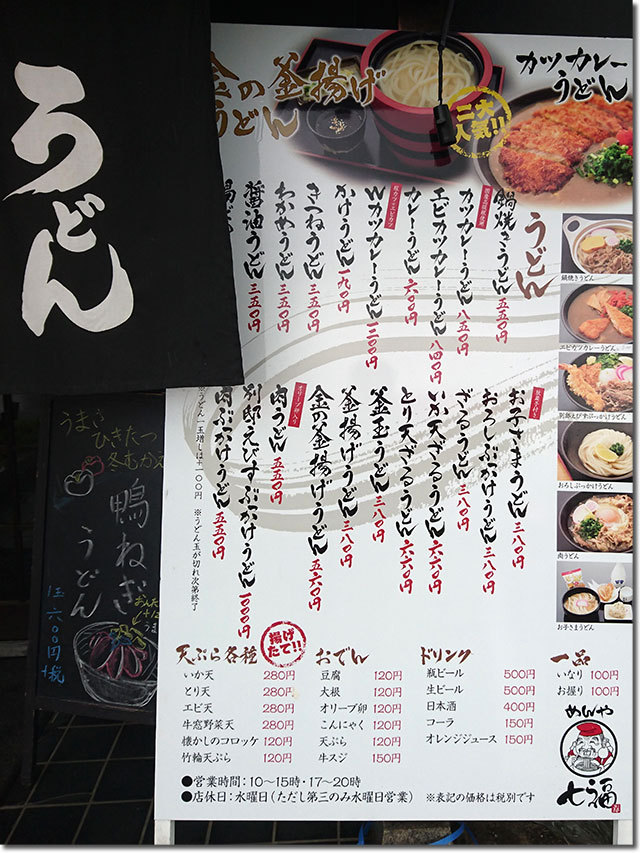 うどん
金の釜揚げ
うどん
二大
人気!!
カツカレー
うどん
うどん
鍋焼きうどん 五五〇円
カツカレーうどん 八五〇円
エビカツカレーうどん 八四〇円
カレーうどん 六〇〇円
豚カツ+エビカツ
Wカツカレーうどん 一二〇〇円
かけうどん 一九〇円
きつねうどん 三五〇円
わかめうどん 三五〇円
醤油うどん 三五〇円
お子さまうどん 三八〇円
おろしぶっかけうどん 三八〇円
ざるうどん 三八〇円
いか天ざるうどん 六六〇円
とり天ざるうどん 六六〇円
釜玉うどん 三八〇円
釜揚げうどん 三八〇円
金の釜揚げうどん 五六〇円
オリーブ卵入り
肉うどん 五五〇円
別邸えびすぶっかけうどん 一〇〇〇円
肉ぶっかけうどん 五五〇円
※うどん一玉増しは+一〇〇円 ※うどん玉が切れ次第終了
鍋焼きうどん
エビカツカレーうどん
別邸えびすぶっかけうどん
おろしぶっかけうどん
肉うどん
お子さまうどん
天ぷら各種
揚げ
たて!!
いか天 280円
とり天 280円
エビ天 280円
牛窓野菜天 280円
懐かしのコロッケ 120円
竹輪天ぷら 120円
おでん
豆腐 120円
大根 120円
オリーブ卵 120円
こんにゃく 120円
天ぷら 120円
牛スジ 150円
ドリンク
瓶ビール 500円
生ビール 500円
日本酒 400円
コーラ 150円
オレンジジュース 150円
一品
いなり 100円
お握り 100円
めんや
七福
●営業時間:10〜15時・17〜20時
●店休日:水曜日(ただし第三のみ水曜日営業) ※表記の価格は税別です
うまさ
ひきたつ
冬むかえ
鴨ねぎ
うどん
1玉 六〇〇円+税